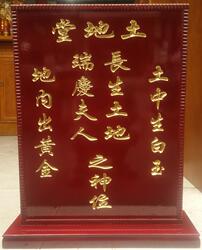 土地堂
土中生白玉
長生土地
瑞慶夫人
之神位
地內出黃金